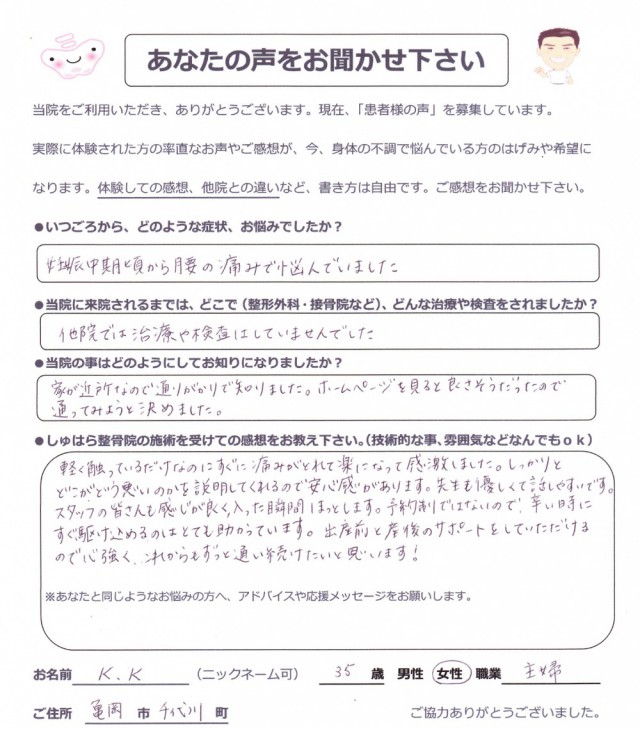 あなたの声をお聞かせ下さい
当院をご利用いただき、ありがとうございます。現在、「患者様の声」を募集しています。
実際に体験された方の率直なお声やご感想が、今、身体の不調で悩んでいる方のはげみや希望に
なります。体験しての感想、他院との違いなど、書き方は自由です。ご感想をお聞かせ下さい。
●いつごろから、どのような症状、お悩みでしたか？
妊娠中期頃から腰の痛みで悩んでいました
●当院に来院されるまでは、どこで（整形外科・接骨院など）、どんな治療や検査をされましたか？
他院では治療や検査はしていませんでした
●当院の事はどのようにしてお知りになりましたか？
家が近所なので通りがかりで知りました。ホームページを見ると良さそうだったので
通ってみようと決めました。
●しゅはら整骨院の施術を受けての感想をお教え下さい。（技術的な事、雰囲気などなんでもｏｋ）
軽く触っているだけなのにすぐに痛みがとれて楽になって感激しました。しっかりと
どこがどう悪いのかを説明してくれるので安心感があります。先生も優しくて話しやすいです。
スタッフの皆さんも感じが良く入った瞬間ほっとします。予約制ではないので、辛い時に
すぐ駆け込めるのはとても助かっています。出産前と産後のサポートをしていただける
ので心強く、これからもずっと通い続けたいと思います！
※あなたと同じようなお悩みの方へ、アドバイスや応援メッセージをお願いします。
お名前 K.K （ニックネーム可） 35 歳 男性 女性 職業 主婦
ご住所 亀岡 市 千代川 町 ご協力ありがとうございました。